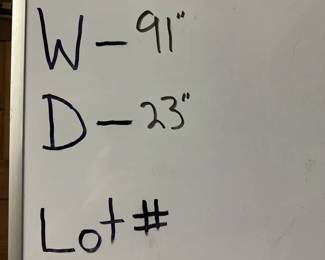 W - 91"
D - 23"
Lot #